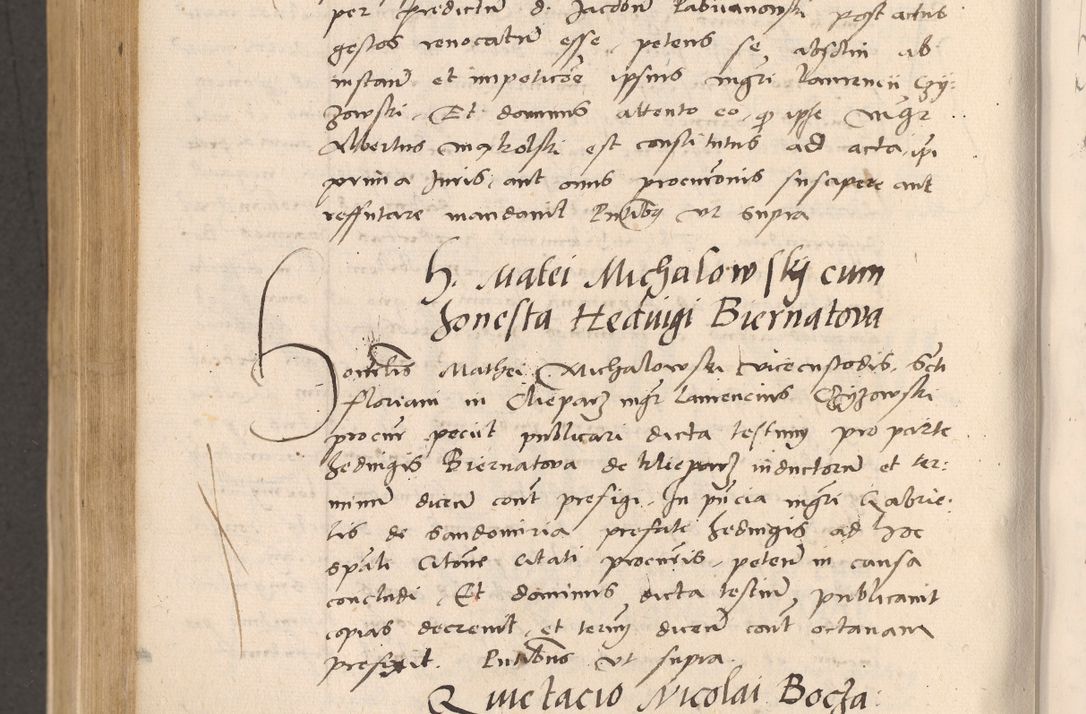 per predictum d. Jacobum Rabiianowski post actus
gestos renocatum esse, petens se absolui ab
instam et impeticoe ipsius mgri Laurencii Czy:
zowski. Et dominus attento eo, q ipse Mgr
Albertus Mykolski est constitutus ad acta, ipi
prima Juris, aut onus procuronis suscipere aut
reffutare mandauit Pntibq vt supra
H. Matei Michalowskij cum
honesta Heduigi Biernatova
Honbilis Mathei Michalowski vicecustodis Scti
Floriani in Clepardz mgr Laurencius Czyzowski
procur peciit publicari dicta testium pro parte
hedwigis Biernatova de Clepardz inductorum et ter:
minum dicen cont prefigi. In pncia mgri Gabrie-
lis de Sandomiria prefate hedwigis ad hoc
spali Citone citati procuris, petem in causa
concludi. Et dominus dicta testium publicauit
copias decreuit, et termin dicen cont octauam
prefixit. Pntibus vt supra.
Quietacio Nicolai Bocza